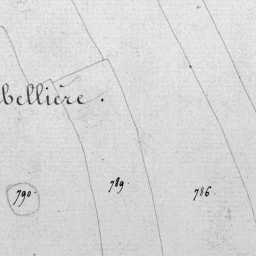 bellière.
789.
786.
790.